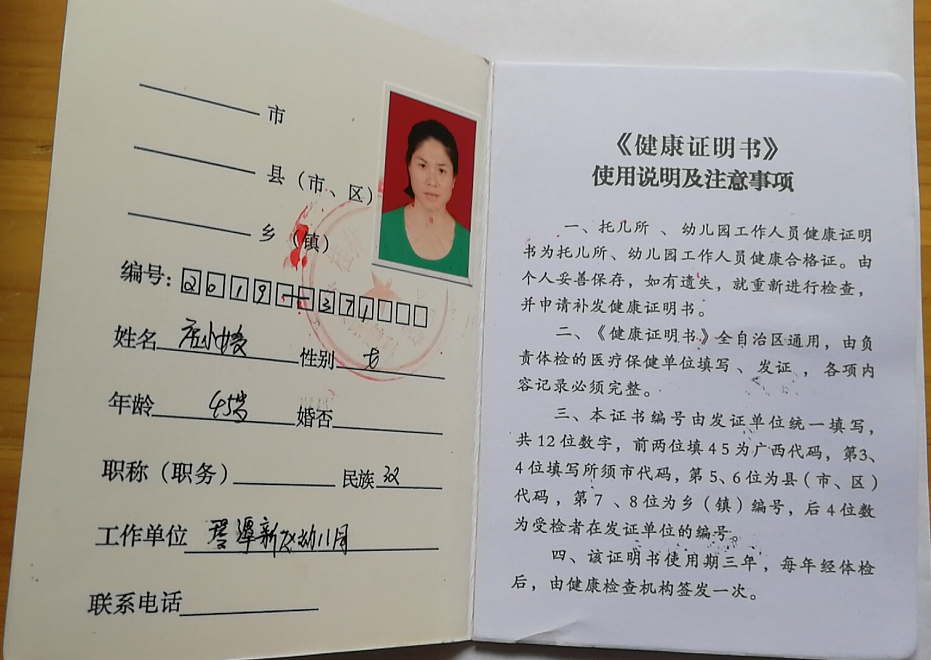 市
县（市、区）
乡（镇）
编号：2019--371
姓名 性别 女
年龄 45岁 婚否
职称（职务） 民族 汉
工作单位 潭新 幼儿园
联系电话
《健康证明书》
使用说明及注意事项
一、托儿所 、 幼儿园工作人员健康证明
书为托儿所、幼儿园工作人员健康合格证。由
个人妥善保存，如有遗失，就重新进行检查，
并申请补发健康证明书。
二、《健康证明书》全自治区通用，由负
责体检的医疗保健单位填写 、 发证 ，各项内
容记录必须完整。
三、本证书编号由发证单位统一填写，
共12位数字，前两位填45为广西代码，第3、
4位填写所须市代码，第5、6位为县（市、区）
代码，第7 、8位为乡（镇）编号，后4位数
为受检者在发证单位的编号。
四、该证明书使用期三年，每年经体检
后，由健康检查机构签发一次。